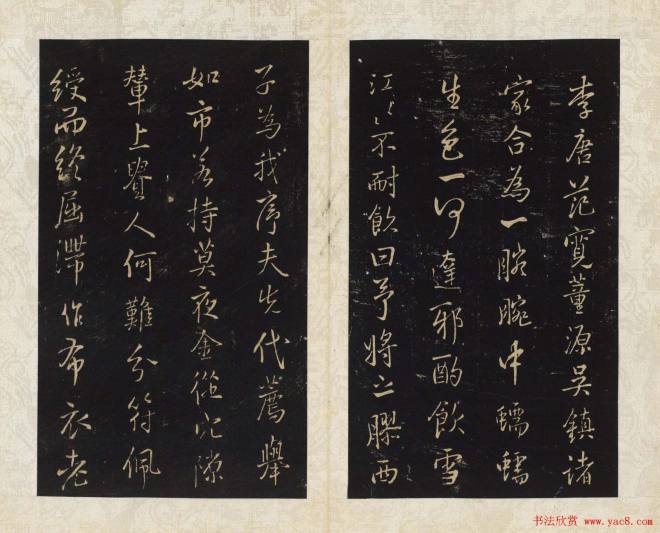 李唐范寬董源吳鎮諸
家合為一腕腕中蠕蠕
生色一何達邪酌飲雪
江江不耐飲曰予將之膠西
子為我序夫先代薦舉
如市若持莫夜金從隙
輦上賢人何難分符佩
綬而終屈滯作布衣老
书法欣赏 www.yac8.com